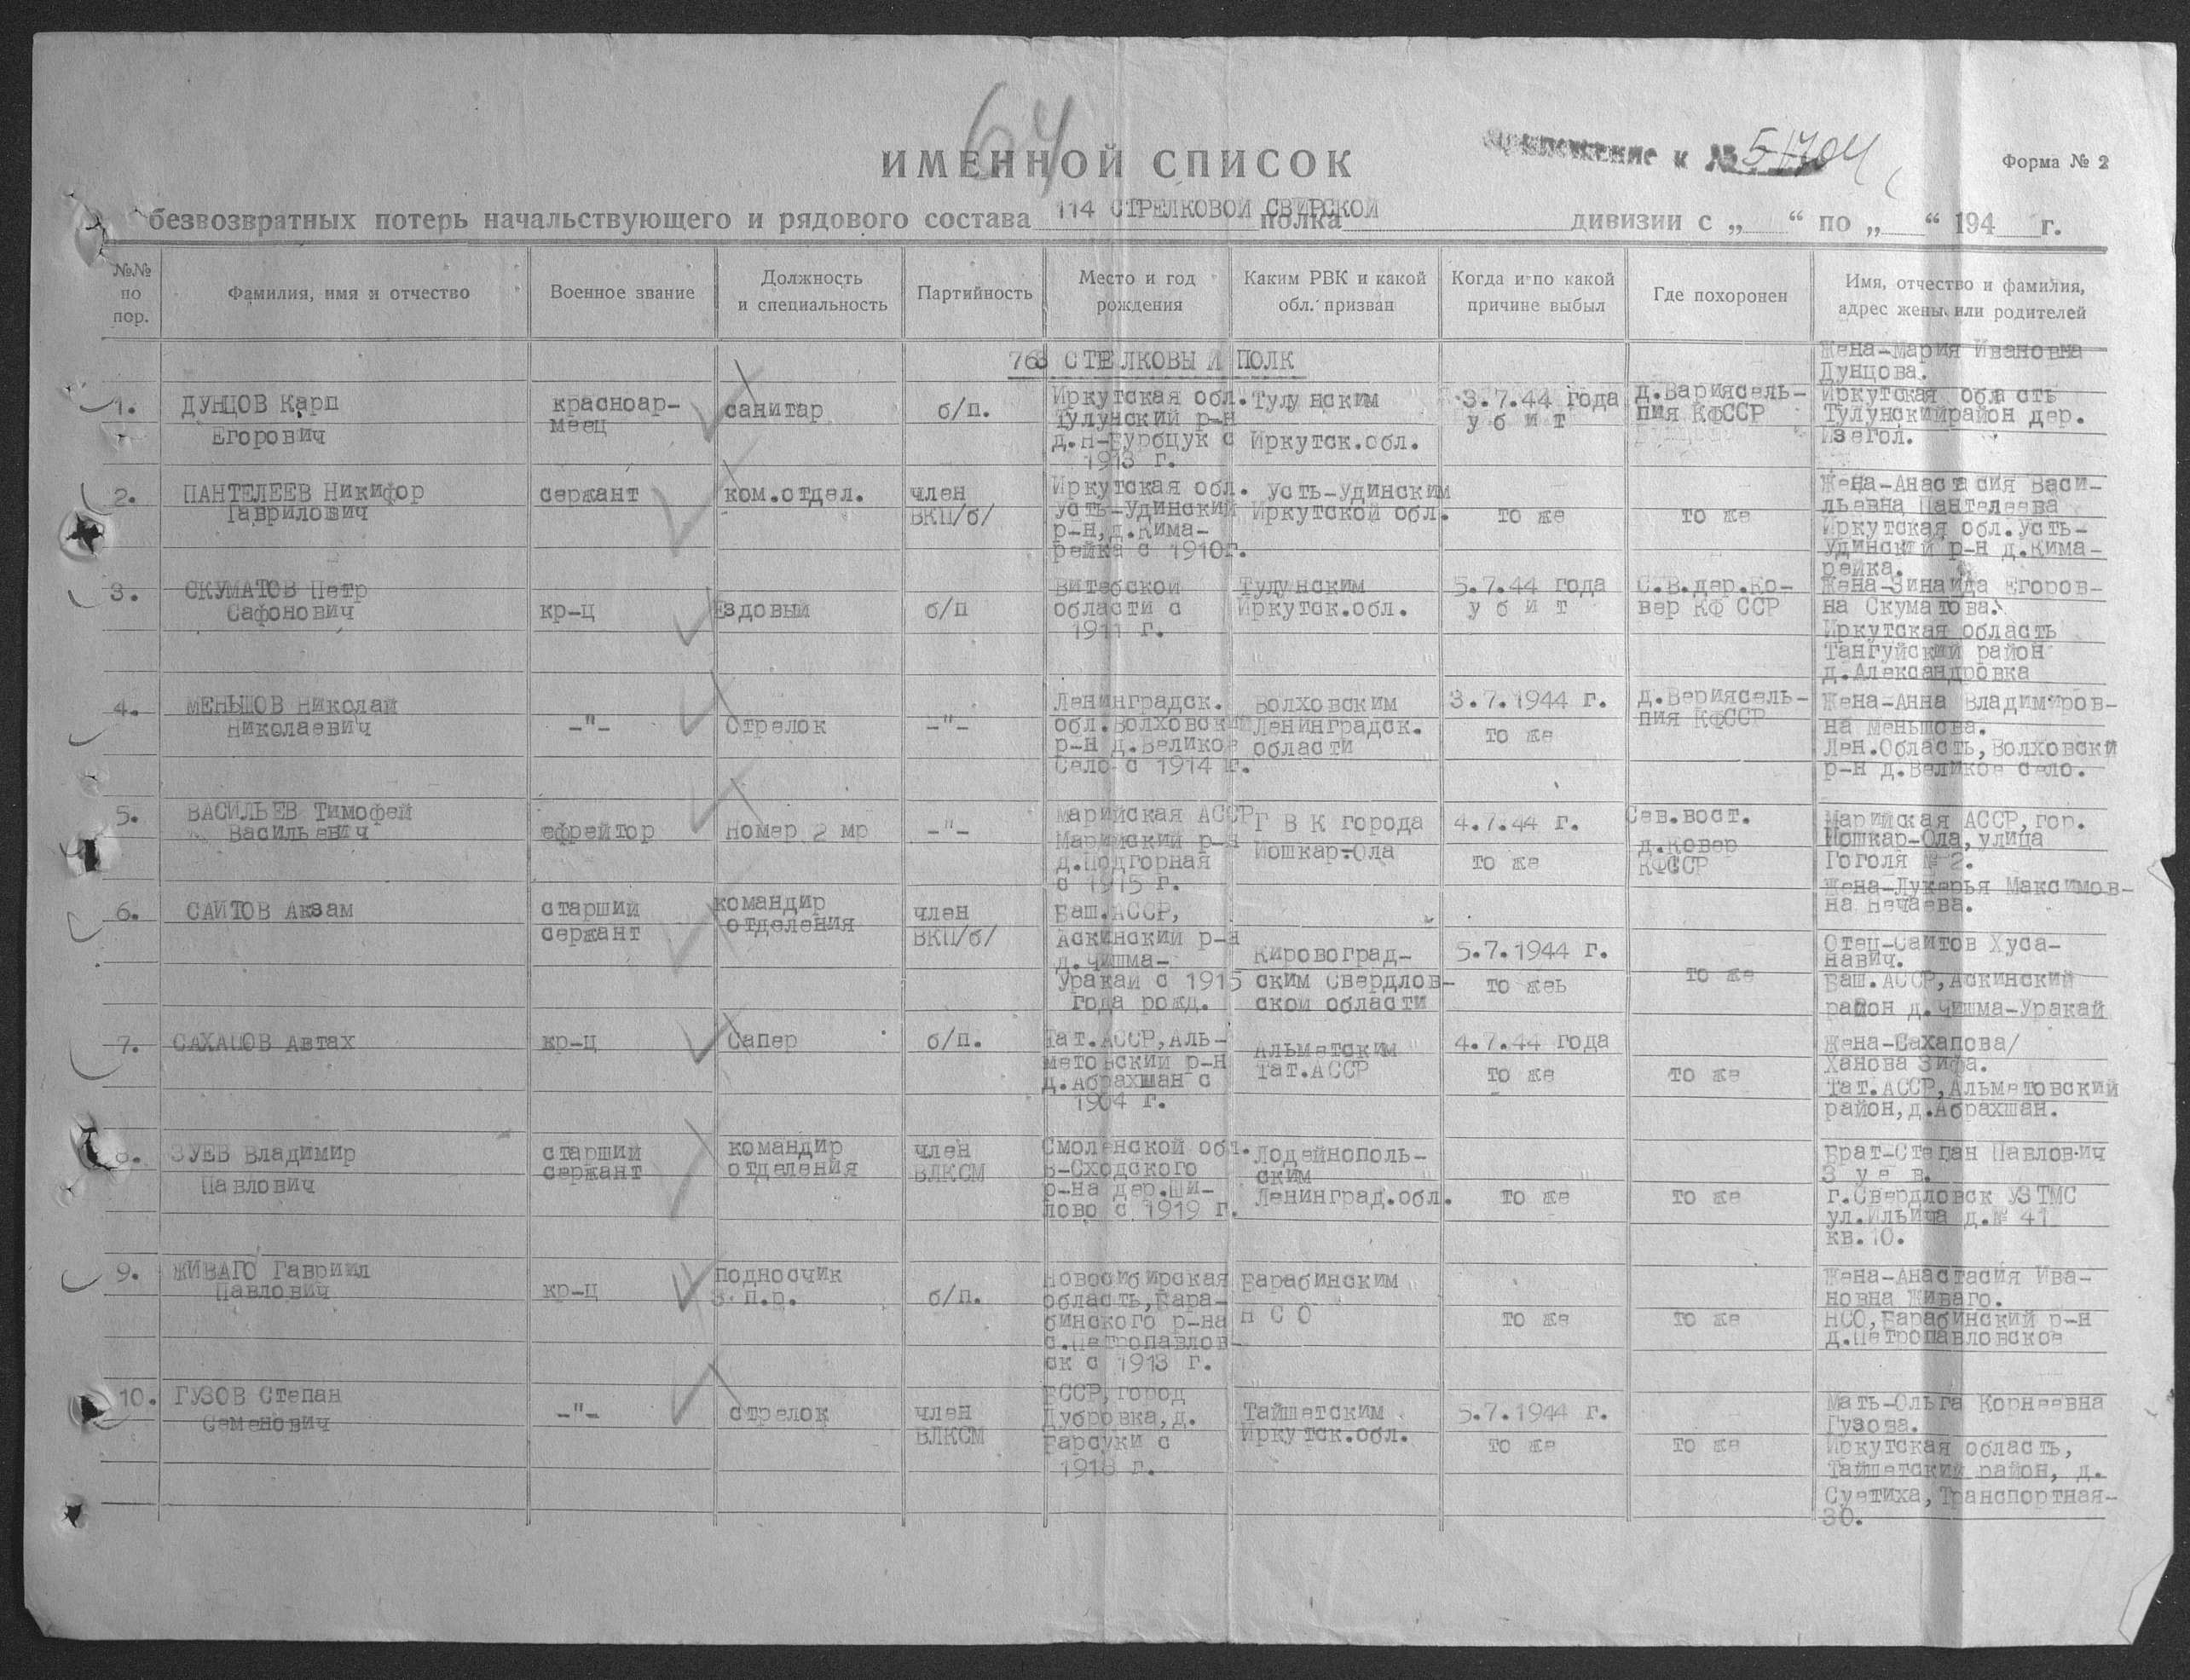 64
ИМЕННОЙ СПИСОК
Приложение к № 51704
Форма № 2
безвозвратных потерь начальствующего и рядового состава 114 СТРЕЛКОВОЙ СВИРСКОЙ полка дивизии с „ “ по „ “ 194 г.
№№ по пор.
Фамилия, имя и отчество
Военное звание
Должность и специальность
Партийность
Место и год рождения
Каким РВК и какой обл. призван
Когда и по какой причине выбыл
Где похоронен
Имя, отчество и фамилия, адрес жены или родителей
763 СТЕЛКОВЫЙ ПОЛК
1.
ДУНЦОВ Карп
Егорович
красноар-
меец
санитар
б/п.
Иркутская обл.
Тулунский р-н
1913 г.
Тулунским
Иркутск.обл.
3.7.44 года
у б и т
д.Вариясель-
пия КФССР
Жена-Мария Ивановна
Дунцова.
Иркутская область
Тулунскийрайон дер.
Изегол.
2.
ПАНТЕЛЕЕВ Никифор
Гаврилович
сержант
ком.отдел.
член
ВКП/б/
Иркутская обл.
Усть-Удинский
р-н,д.Кима-
рейка с 1910г.
Усть-Удинским
Иркутской обл.
то же
то же
Жена-Анастасия Васи-
льевна Пантелеева
Иркутская обл.Усть-
Удинский р-н д.Кима-
рейка.
3.
СКУМАТОВ Петр
Сафонович
кр-ц
Ездовый
б/п
Витебской
области с
1911 г.
Тулунским
Иркутск.обл.
5.7.44 года
у б и т
С.В.дер.Ко-
вер КФ ССР
Жена-Зинаида Егоров-
на Скуматова.
Иркутская область
Тангуйский район
д.Александровка
4.
МЕНЬШОВ Николай
Николаевич
-"-
Стрелок
-"-
Ленинградск.
обл.Волховский
р-н д.Великое
Село с 1914 г.
Волховским
Ленинградск.
области
3.7.1944 г.
то же
д.Вериясель-
пия КФССР
Жена-Анна Владимиров-
на Меньшова.
Лен.Область,Волховски
р-н д.Великое село.
5.
ВАСИЛЬЕВ Тимофей
Васильевич
ефрейтор
Номер 2 мр
-"-
Марийская АССР
Марийский р-н
д.Подгорная
с 1915 г.
Г В К города
Йошкар-Ола
4.7.44 г.
то же
Сев.вост.
д.Ковер
КФССР
Марийская АССР,гор.
Йошкар-Ола,улица
Гоголя № 2.
Жена-Лукерья Максимов-
на Нечаева.
6.
САИТОВ Акзам
старший
сержант
командир
отделения
член
ВКП/б/
Баш.АССР,
Аскинский р-н
д.Чишма-
Уракай с 1915
года рожд.
Кировоград-
ским Свердлов-
ской области
5.7.1944 г.
то жеь
то же
Отец-Саитов Хуса-
навич.
Баш.АССР,Аскинский
район д.Чишма-Уракай
7.
САХАПОВ Автах
кр-ц
Сапер
б/п.
Тат.АССР,Аль-
метовский р-н
д.Абрахман с
1904 г.
Альметским
Тат.АССР
4.7.44 года
то же
то же
Жена-Сахапова/
Ханова Зифа.
Тат.АССР,Альметовский
район,д.Абрахман.
8.
ЗУЕВ Владимир
Павлович
старший
сержант
командир
отделения
член
ВЛКСМ
Смоленской обл.
В-Сходского
р-на дер.Ши-
лово с 1919 г.
Лодейнополь-
ским
Ленинград.обл.
то же
то же
Брат-Степан Павлович
З у е в.
г.Свердловск УЗТМС
ул.Ильича д.№ 41
кв.10.
9.
ЖИВАГО Гавриил
Павлович
кр-ц
подносчик
п.п.
б/п.
Новосибирская
область,Бара-
бинского р-на
с.Петропавлов-
ск с 1913 г.
Барабинским
Н С О
то же
то же
Жена-Анастасия Ива-
новна Живаго.
НСО,Барабинский р-н
д.Петропавловское
10.
ГУЗОВ Степан
Семенович
-"-
стрелок
член
ВЛКСМ
БССР,город
Дубровка,д.
Барсуки с
1918 г.
Тайшетским
Иркутск.обл.
5.7.1944 г.
то же
то же
Мать-Ольга Корнеевна
Гузова.
Иркутская область,
Тайшетский район, д.
Суетиха,Транспортная-
30.